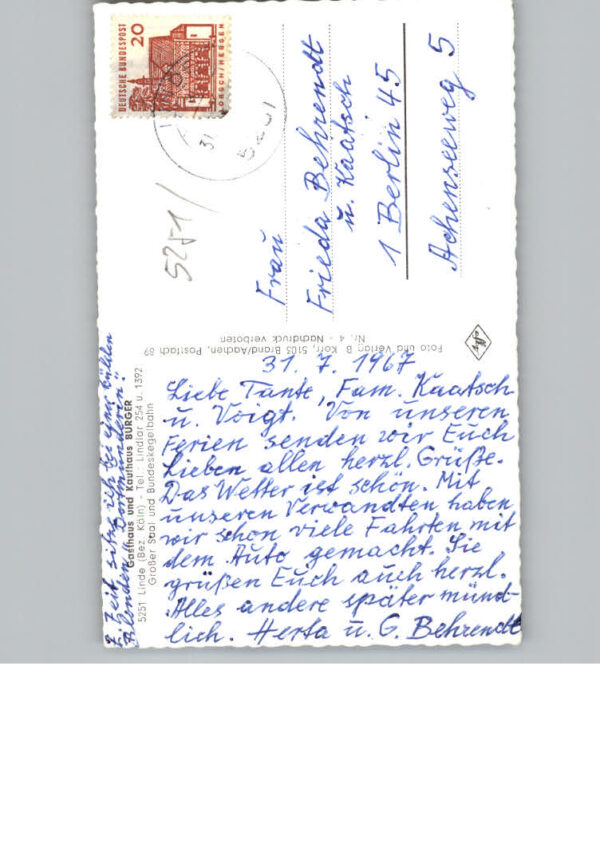 DEUTSCHE BUNDESPOST
20
LORSCH/HESSEN
31
5251
5251/
Frau
Frieda Behrendt
u. Kaatsch
1 Berlin 45
Achenseeweg 5
Foto und Verlag B. Korr, 5103 Brand/Aachen, Postfach 89
Nr. 4 - Nachdruck verboten
Agfa
31. 7. 1967
Liebe Tante, Fam. Kaatsch
u. Voigt. Von unseren
Ferien senden wir Euch
Lieben allen herzl. Grüße.
Das Wetter ist schön. Mit
unseren Verwandten haben
wir schon viele Fahrten mit
dem Auto gemacht. Sie
grüßen Euch auch herzl.
Alles andere später münd-
lich. Herta u. G. Behrendt
Gasthaus und Kaufhaus BÜRGER
5251 Linde (Bez. Köln) - Tel.: Lindlar 254 u. 1392
Großer Saal und Bundeskegelbahn
z. Zeit sitze ich bei einer kühlen
Blonden "Dortmunderin"